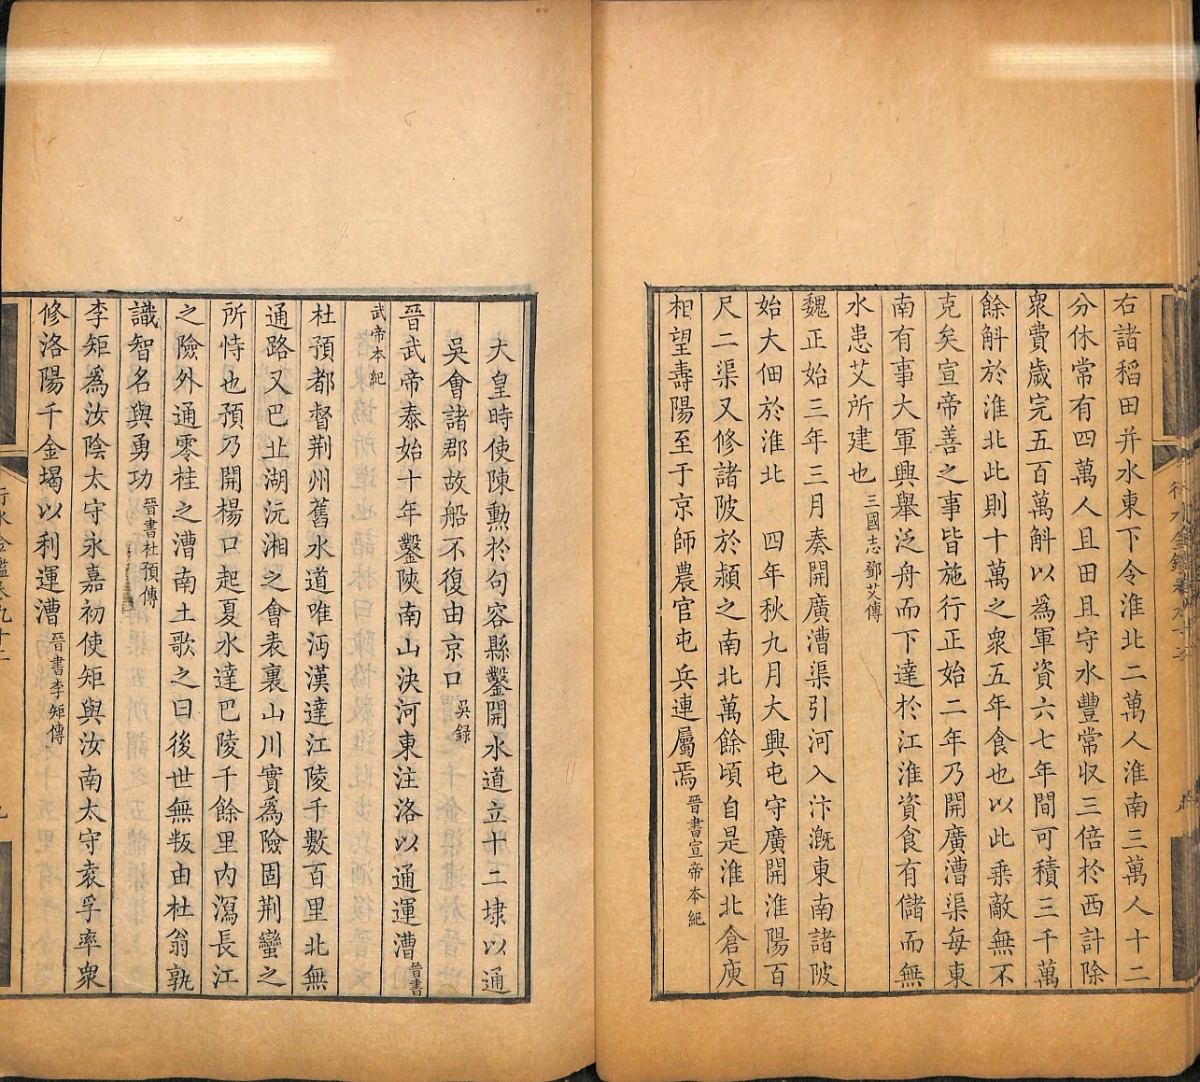 右諸稻田并水東下令淮北二萬人淮南三萬人十二
分休常有四萬人且田且守水豐常收三倍於西計除
衆費歲完五百萬斛以爲軍資六七年間可積三千萬
餘斛於淮北此則十萬之衆五年食也以此乗敵無不
克矣宣帝善之事皆施行正始二年乃開廣漕渠每東
南有事大軍興舉泛舟而下達於江淮資食有儲而無
水患艾所建也三國志鄧艾傳
魏正始三年三月奏開廣漕渠引河入汴漑東南諸陂
始大佃於淮北 四年秋九月大興屯守廣開淮陽百
尺二渠又修諸陂於潁之南北萬餘頃自是淮北倉庾
相望壽陽至于京師農官屯兵連屬焉晉書宣帝本紀
大皇時使陳勳於句容縣鑿開水道立十二埭以通
吳會諸郡故船不復由京口吳録
晉武帝泰始十年鑿陝南山決河東注洛以通運漕晉書
武帝本紀
杜預都督荆州舊水道唯沔漢達江陵千數百里北無
通路又巴丘湖沅湘之會表裏山川實爲險固荆蠻之
所恃也預乃開楊口起夏水達巴陵千餘里内瀉長江
之險外通零桂之漕南土歌之曰後世無叛由杜翁孰
識智名與勇功晉書杜預傳
李矩爲汝陰太守永嘉初使矩與汝南太守袁孚率衆
修洛陽千金堨以利運漕晉書李矩傳
行水金鑑卷九十二
九